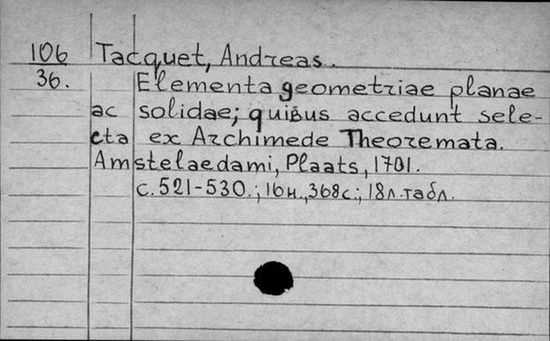 106 Tacquet, Andreas.
36. Elementa geometriae planae
ac solidae; quibus accedunt sele-
cta ex Archimede Theoremata.
Amstelaedami, Plaats, 1701.
с. 521-530.; 16н., 368с.; 18л. табл.